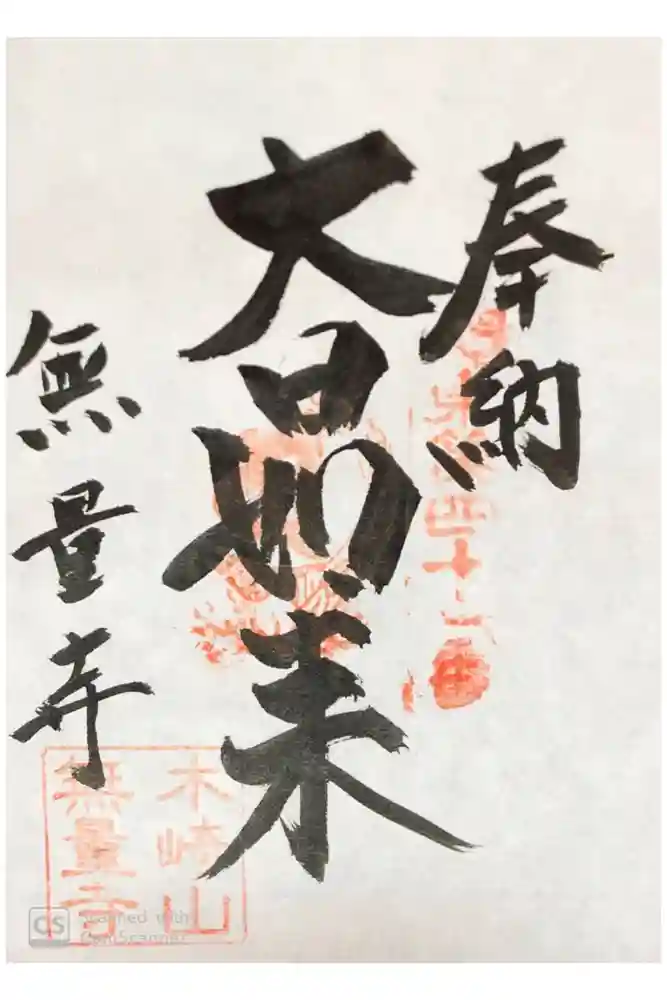 奉納
大日如来
無量寺
四十一番
木崎山
無量寺
CS Scanned with
CamScanner